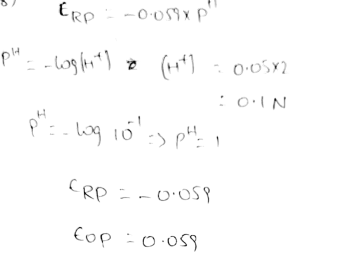 8)
ERP = -0.059 x pH
pH = -log(H+) (H+) = 0.05x2
= 0.1 N
pH = -log 10^-1 => pH = 1
ERP = -0.059
EOP = 0.059